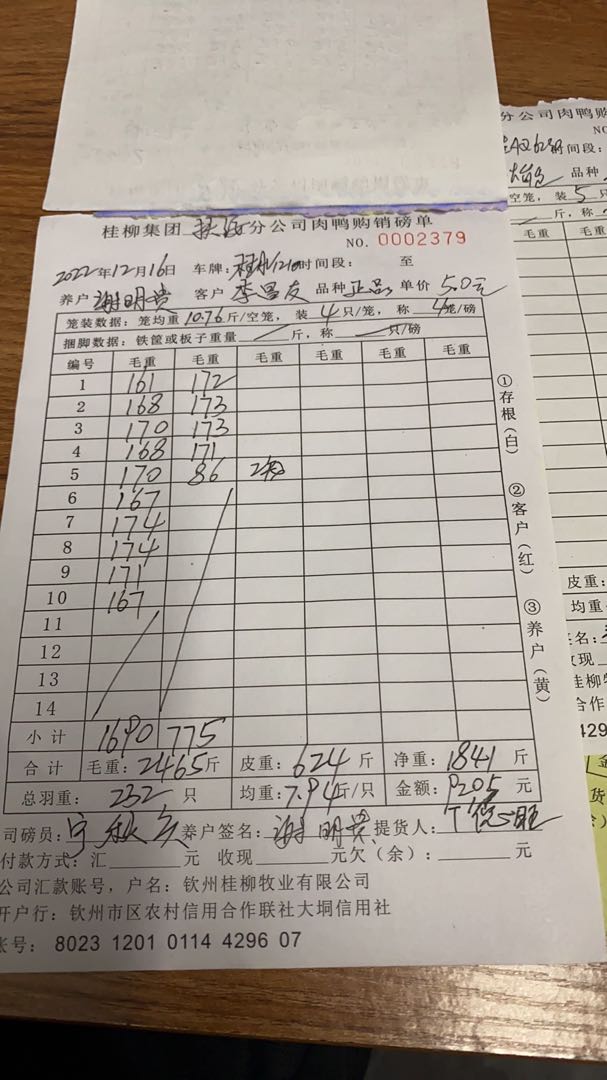 桂柳集团 分公司肉鸭购销磅单
NO. 0002379
2022年12月16日 车牌: 时间段: 至
养户 谢明贵 客户 李昌友 品种 正品 单价 5.0元
笼装数据: 笼均重 10.76 斤/空笼, 装 4 只/笼, 称 4 笼/磅
捆脚数据: 铁筐或板子重量 斤, 称 只/磅
编号 毛重 毛重 毛重 毛重 毛重 毛重
1 161 172
2 168 173
3 170 173
4 168 171
5 170 86
6 167
7 174
8 174
9 171
10 167
11
12
13
14
小计 1690 775
合计 毛重: 2465 斤 皮重: 624 斤 净重: 1841 斤
总羽重: 232 只 均重: 7.94 斤/只 金额: 9205 元
司磅员: 养户签名: 谢明贵 提货人:
付款方式: 汇 元 收现 元欠(余): 元
公司汇款账号, 户名: 钦州桂柳牧业有限公司
开户行: 钦州市区农村信用合作联社大垌信用社
账号: 8023 1201 0114 4296 07
①存根(白)
②客户(红)
③养户(黄)
分公司肉鸭购
NO
时间段:
品种
空笼, 装 5 只
斤, 称
毛重 毛重
皮重:
均重:
签名:
收现
桂柳牧
合作
429